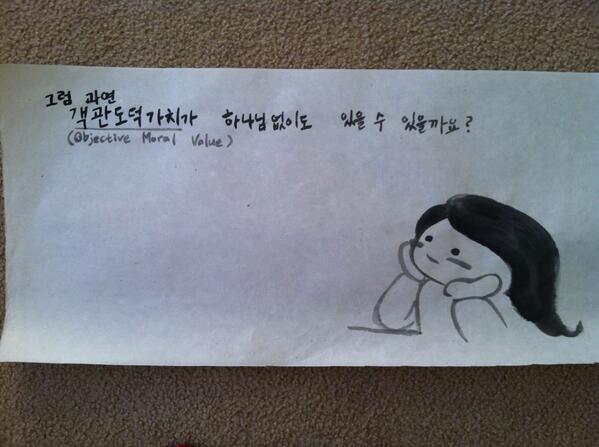 그럼 과연
객관도덕가치가 하나님 없이도 있을 수 있을까요?
(Objective Moral Value)